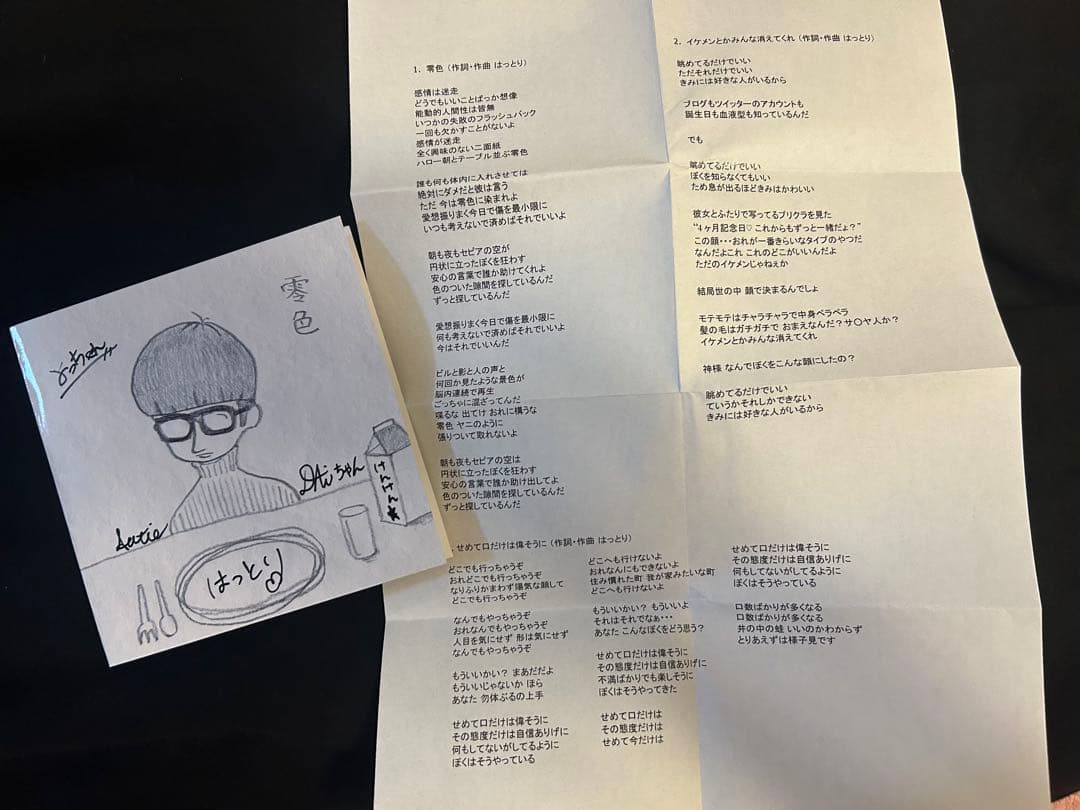 零色
DAiちゃん
けんけん★
Autie
はっとり
1. 零色 (作詞・作曲 はっとり)
感情は迷走
どうでもいいことばっか想像
能動的人間性は皆無
いつかの失敗のフラッシュバック
一回も欠かすことがないよ
感情が迷走
全く興味のない二面紙
ハロー朝とテーブル並ぶ零色
誰も何も体内に入れさせては
絶対にダメだと彼は言う
ただ 今は零色に染まれよ
愛想振りまく今日で傷を最小限に
いつも考えないで済めばそれでいいよ
朝も夜もセピアの空が
円状に立ったぼくを狂わす
安心の言葉で誰か助けてくれよ
色のついた隙間を探しているんだ
ずっと探しているんだ
愛想振りまく今日で傷を最小限に
何も考えないで済めばそれでいいよ
今はそれでいいんだ
ビルと影と人の声と
何回か見たような景色が
脳内連続で再生
ごっちゃに混ざってんだ
喋るな 出てけ おれに構うな
零色 ヤニのように
張りついて取れないよ
朝も夜もセピアの空は
円状に立ったぼくを狂わす
安心の言葉で誰か助け出してよ
色のついた隙間を探しているんだ
ずっと探しているんだ
2. イケメンとかみんな消えてくれ (作詞・作曲 はっとり)
眺めてるだけでいい
ただそれだけでいい
きみには好きな人がいるから
ブログもツイッターのアカウントも
誕生日も血液型も知っているんだ
でも
眺めてるだけでいい
ぼくを知らなくてもいい
ため息が出るほどきみはかわいい
彼女とふたりで写ってるプリクラを見た
“4ヶ月記念日♡ これからもずっと一緒だよ？”
この顔・・・おれが一番きらいなタイプのやつだ
なんだよこれ これのどこがいいんだよ
ただのイケメンじゃねぇか
結局世の中 顔で決まるんでしょ
モテモテはチャラチャラで中身ペラペラ
髪の毛はガチガチで おまえなんだ？サ〇ヤ人か？
イケメンとかみんな消えてくれ
神様 なんでぼくをこんな顔にしたの？
眺めてるだけでいい
ていうかそれしかできない
きみには好きな人がいるから
. せめて口だけは偉そうに (作詞・作曲 はっとり)
どこでも行っちゃうぞ
おれどこでも行っちゃうぞ
なりふりかまわず陽気な顔して
どこでも行っちゃうぞ
なんでもやっちゃうぞ
おれなんでもやっちゃうぞ
人目を気にせず 形は気にせず
なんでもやっちゃうぞ
もういいかい？ まあだだよ
もういいじゃないか ほら
あなた 勿体ぶるの上手
せめて口だけは偉そうに
その態度だけは自信ありげに
何もしてないがしてるように
ぼくはそうやっている
どこへも行けないよ
おれなんにもできないよ
住み慣れた町 我が家みたいな町
どこへも行けないよ
もういいかい？ もういいよ
それはそれでなぁ・・・
あなた こんなぼくをどう思う？
せめて口だけは偉そうに
その態度だけは自信ありげに
不満ばかりでも楽しそうに
ぼくはそうやってきた
せめて口だけは
その態度だけは
せめて今だけは
せめて口だけは偉そうに
その態度だけは自信ありげに
何もしてないがしてるように
ぼくはそうやっている
口数ばかりが多くなる
口数ばかりが多くなる
井の中の蛙 いいのかわからず
とりあえずは様子見です